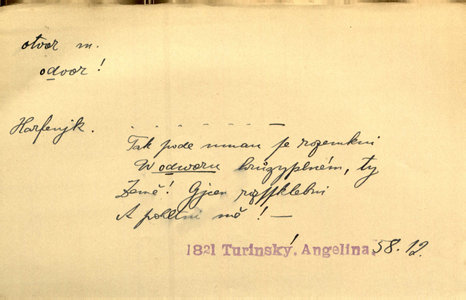 otvor m.
odvor!
Harfenjk.
Tak pode mnau se rozemkni
W odworu hrůzyplném, ty
Země! Gjcen rozssklebni
A pohlni mě! —
1821 Turinský, Angelina, 58.12.